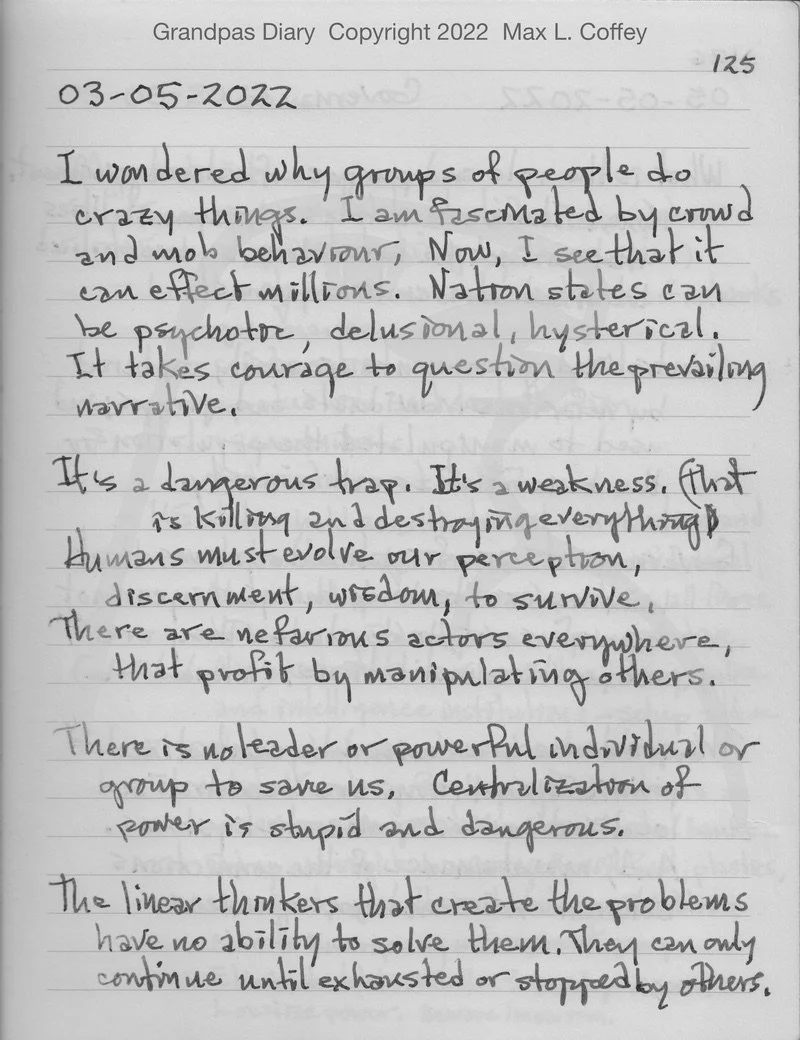 Grandpas Diary Copyright 2022 Max L. Coffey
125
03-05-2022
I wondered why groups of people do
crazy things. I am fascinated by crowd
and mob behaviour, Now, I see that it
can effect millions. Nation states can
be psychotic, delusional, hysterical.
It takes courage to question the prevailing
narrative.
It's a dangerous trap. It's a weakness. (that
is killing and destroying everything)
Humans must evolve our perception,
discernment, wisdom, to survive,
There are nefarious actors everywhere,
that profit by manipulating others.
There is no leader or powerful individual or
group to save us, Centralization of
power is stupid and dangerous.
The linear thinkers that create the problems
have no ability to solve them. They can only
continue until exhausted or stopped by others.